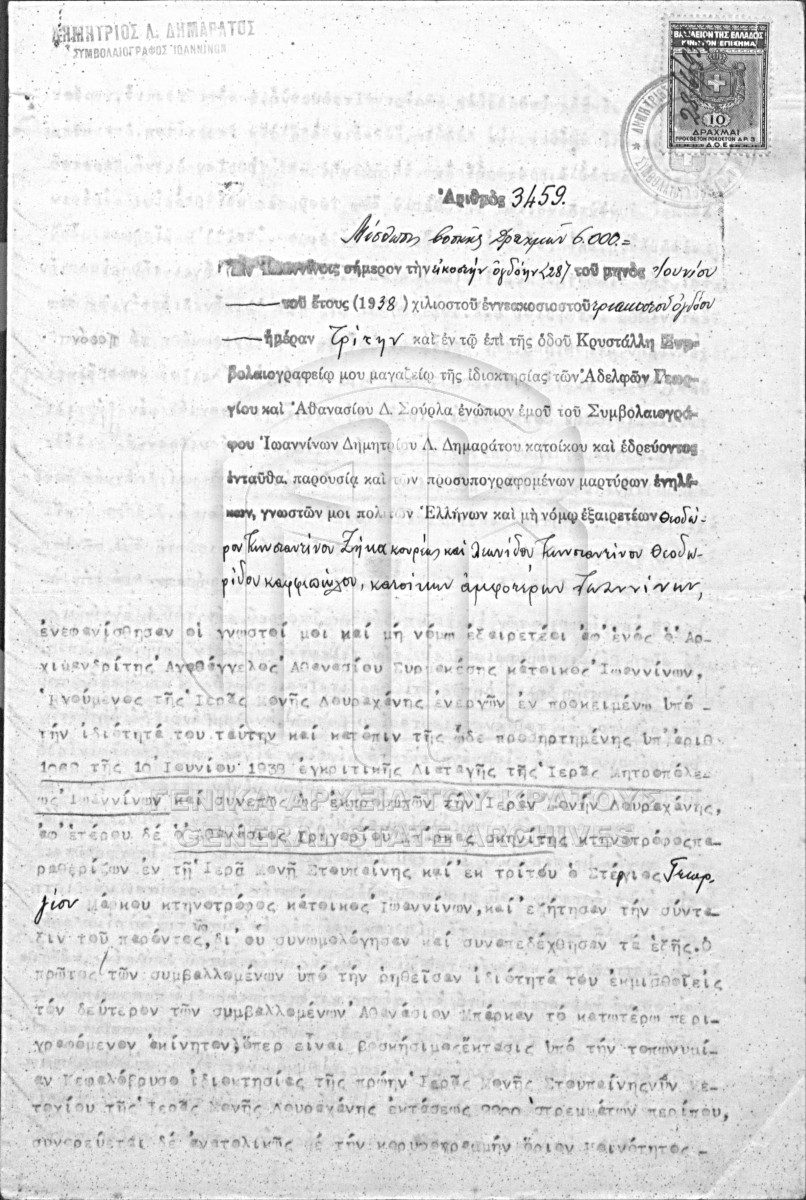 ΔΗΜΗΤΡΙΟΣ Λ. ΔΗΜΑΡΑΤΟΣ
ΣΥΜΒΟΛΑΙΟΓΡΑΦΟΣ ΙΩΑΝΝΙΝΩΝ
ΒΑΣΙΛΕΙΟΝ ΤΗΣ ΕΛΛΑΔΟΣ
ΚΙΝΗΤΟΝ ΕΠΙΣΗΜΑ
10
ΔΡΑΧΜΑΙ
Ἀριθμὸς 3459.
Μίσθωσις βοσκῆς Δραχμῶν 6.000=
Ἐν Ἰωαννίνοις σήμερον τὴν εἰκοστὴν ὀγδόην (28) τοῦ μηνὸς Ἰουνίου
τοῦ ἔτους (1938) χιλιοστοῦ ἐννεακοσιοστοῦ τριακοστοῦ ὀγδόου
ἡμέραν Τρίτην καὶ ἐν τῷ ἐπὶ τῆς ὁδοῦ Κρυστάλλη Συμ-
βολαιογραφείῳ μου μαγαζείῳ τῆς ἰδιοκτησίας τῶν Ἀδελφῶν Γεωρ-
γίου καὶ Ἀθανασίου Δ. Σούρλα ἐνώπιον ἐμοῦ τοῦ Συμβολαιογρά-
φου Ἰωαννίνων Δημητρίου Λ. Δημαράτου κατοίκου καὶ ἑδρεύοντος
ἐνταῦθα, παρουσίᾳ καὶ τῶν προσυπογραφομένων μαρτύρων ἐνηλί-
κων, γνωστῶν μοι πολιτῶν Ἑλλήνων καὶ μὴ νόμῳ ἐξαιρετέων Θεοδώ-
ρου Κωνσταντίνου Ζήκα κουρέως καὶ Λεωνίδου Κωνσταντίνου Θεοδω-
ρίδου καφφεπώλου, κατοίκων ἀμφοτέρων Ἰωαννίνων,
ἐνεφανίσθησαν οἱ γνωστοί μοι καί μή νόμω ἐξαιρετέοι ἀφ'ἑνός ὁ Ἀρ-
χιμανδρίτης Ἀγαθάγγελος Ἀθανασίου κάτοικος Ἰωαννίνων,
Ἡγούμενος τῆς Ἱερᾶς Μονῆς Δουραχάνης ἐνεργῶν ἐν προκειμένω ὑπό
τήν ἰδιότητά του ταύτην καί κατόπιν τῆς ὧδε προσηρτημένης ὑπ'ἀριθ
τῆς 10 Ἰουνίου 1938 ἐγκριτικῆς Διαταγῆς τῆς Ἱερᾶς Μητροπόλε-
ως Ἰωαννίνων καί συνεπῶς ὡς ἐκπροσωπῶν τήν Ἱεράν Μονήν Δουραχάνης,
ΓΕΝΙΚΑ ΑΡΧΕΙΑ ΤΟΥ ΚΡΑΤΟΥΣ
GENERAL STATE ARCHIVES
ἀφ'ἑτέρου δέ ὁ Ἀθανάσιος Γρηγορίου Μπάρκας σκηνίτης κτηνοτρόφος πα-
ραθερίζων ἐν τῆ Ἱερᾶ Μονῆ Στουπαίνης καί ἐκ τρίτου ὁ Στέργιος Γεωρ-
γίου Μάρκου κτηνοτρόφος κάτοικος Ἰωαννίνων, καί ἐζήτησαν τήν σύντα-
ξιν τοῦ παρόντος, δι'οὗ συνωμολόγησαν καί συναπεδέχθησαν τά ἑξῆς. Ὁ
πρῶτος τῶν συμβαλλομένων ὑπό τήν ρηθεῖσαν ἰδιότητά του ἐκμισθοῖ εἰς
τόν δεύτερον τῶν συμβαλλομένων Ἀθανάσιον Μπάρκαν τό κατωτέρω περι-
γραφόμενον ἀκίνητον, ὅπερ εἶναι βοσκήσιμος ἔκτασις ὑπό τήν τοπωνυμί-
αν Κεφαλόβρυσο ἰδιοκτησίας τῆς πρώην Ἱερᾶς Μονῆς Στουπαίνης νῦν Με-
τοχίου τῆς Ἱερᾶς Μονῆς Δουραχάνης ἐκτάσεως στρεμμάτων περίπου,
συνορεύεται δέ ἀνατολικῶς μέ τήν κορυφογραμμήν ὅριον Κοινότητος-